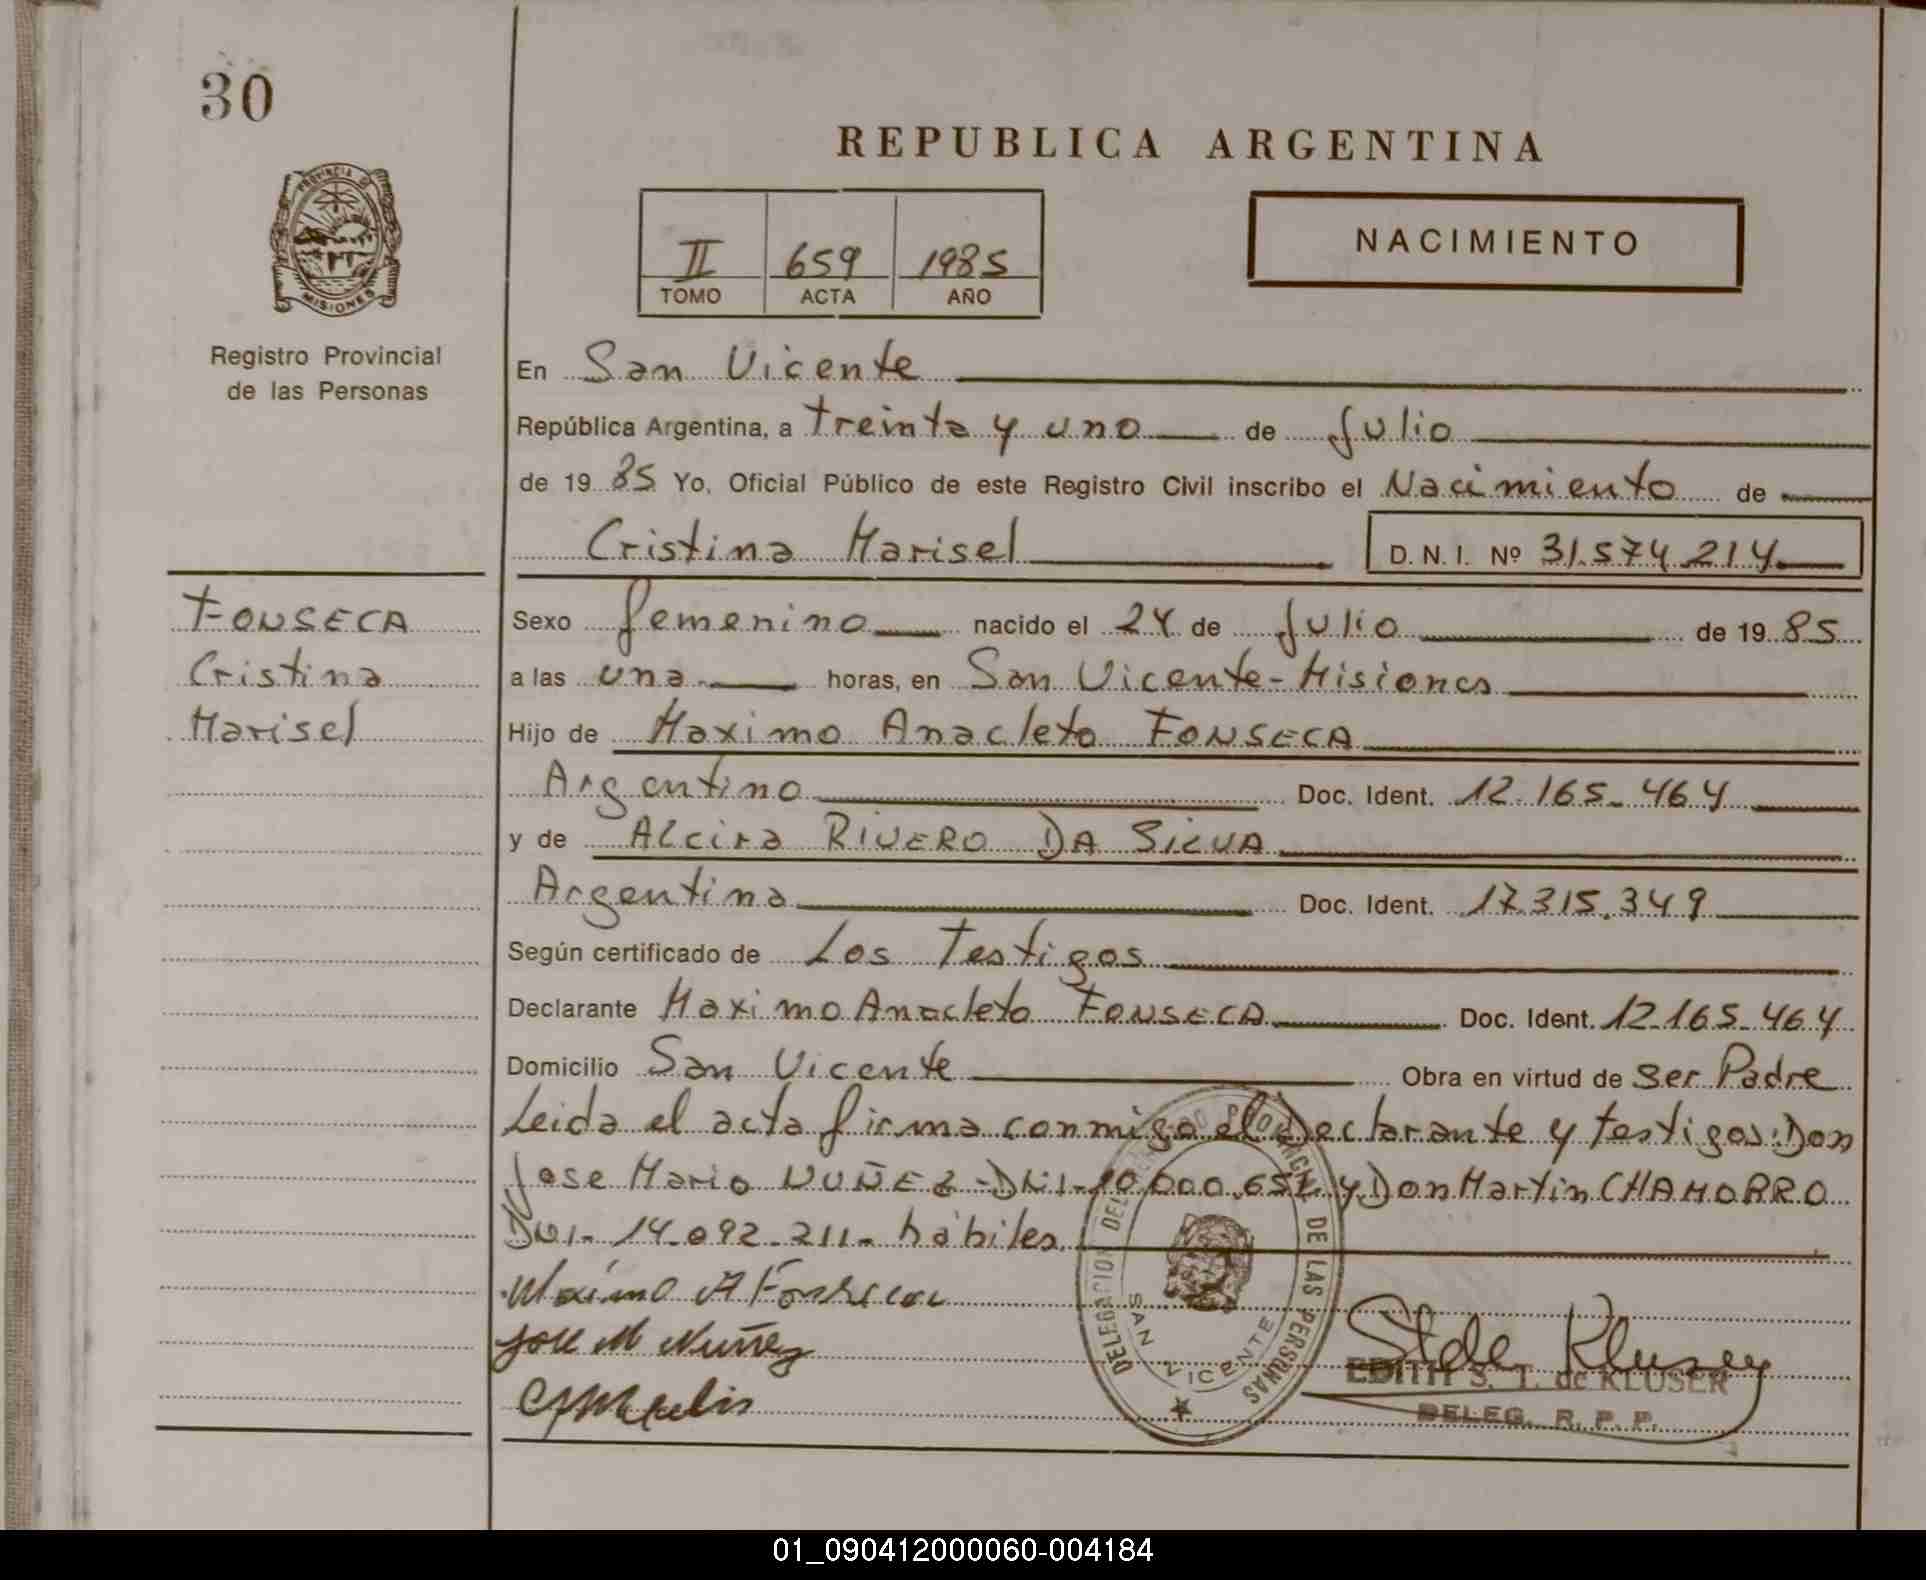 30
REPUBLICA ARGENTINA
PROVINCIA DE
MISIONES
II 659 1985
TOMO ACTA AÑO
NACIMIENTO
Registro Provincial
de las Personas
En San Vicente
República Argentina, a treinta y uno de Julio
de 19 85 Yo, Oficial Público de este Registro Civil inscribo el Nacimiento de
Cristina Marisel D.N.I. Nº 31.574.214
FONSECA
Cristina
Marisel
Sexo femenino nacido el 24 de Julio de 19 85
a las una horas, en San Vicente-Misiones
Hijo de Maximo Anacleto FONSECA
Argentino Doc. Ident. 12.165.464
y de ALcira RIVERO DA SILVA
Argentina Doc. Ident. 17.315.349
Según certificado de Los Testigos
Declarante Maximo Anacleto FONSECA Doc. Ident. 12.165.464
Domicilio San Vicente Obra en virtud de ser Padre
Leida el acta firma conmigo el Declarante y testigos: Don
Jose Mario NUÑEZ-DNI-10.000.652 y Don Martin CHAMORRO
DNI- 14.092.211- hábiles
Maximo A Fonseca
Jose M Nuñez
DELEGACION DEL REGISTRO PROVINCIAL DE LAS PERSONAS
SAN VICENTE
EDITH S. T. de KLUSER
DELEG. R. P. P.
01_090412000060-004184